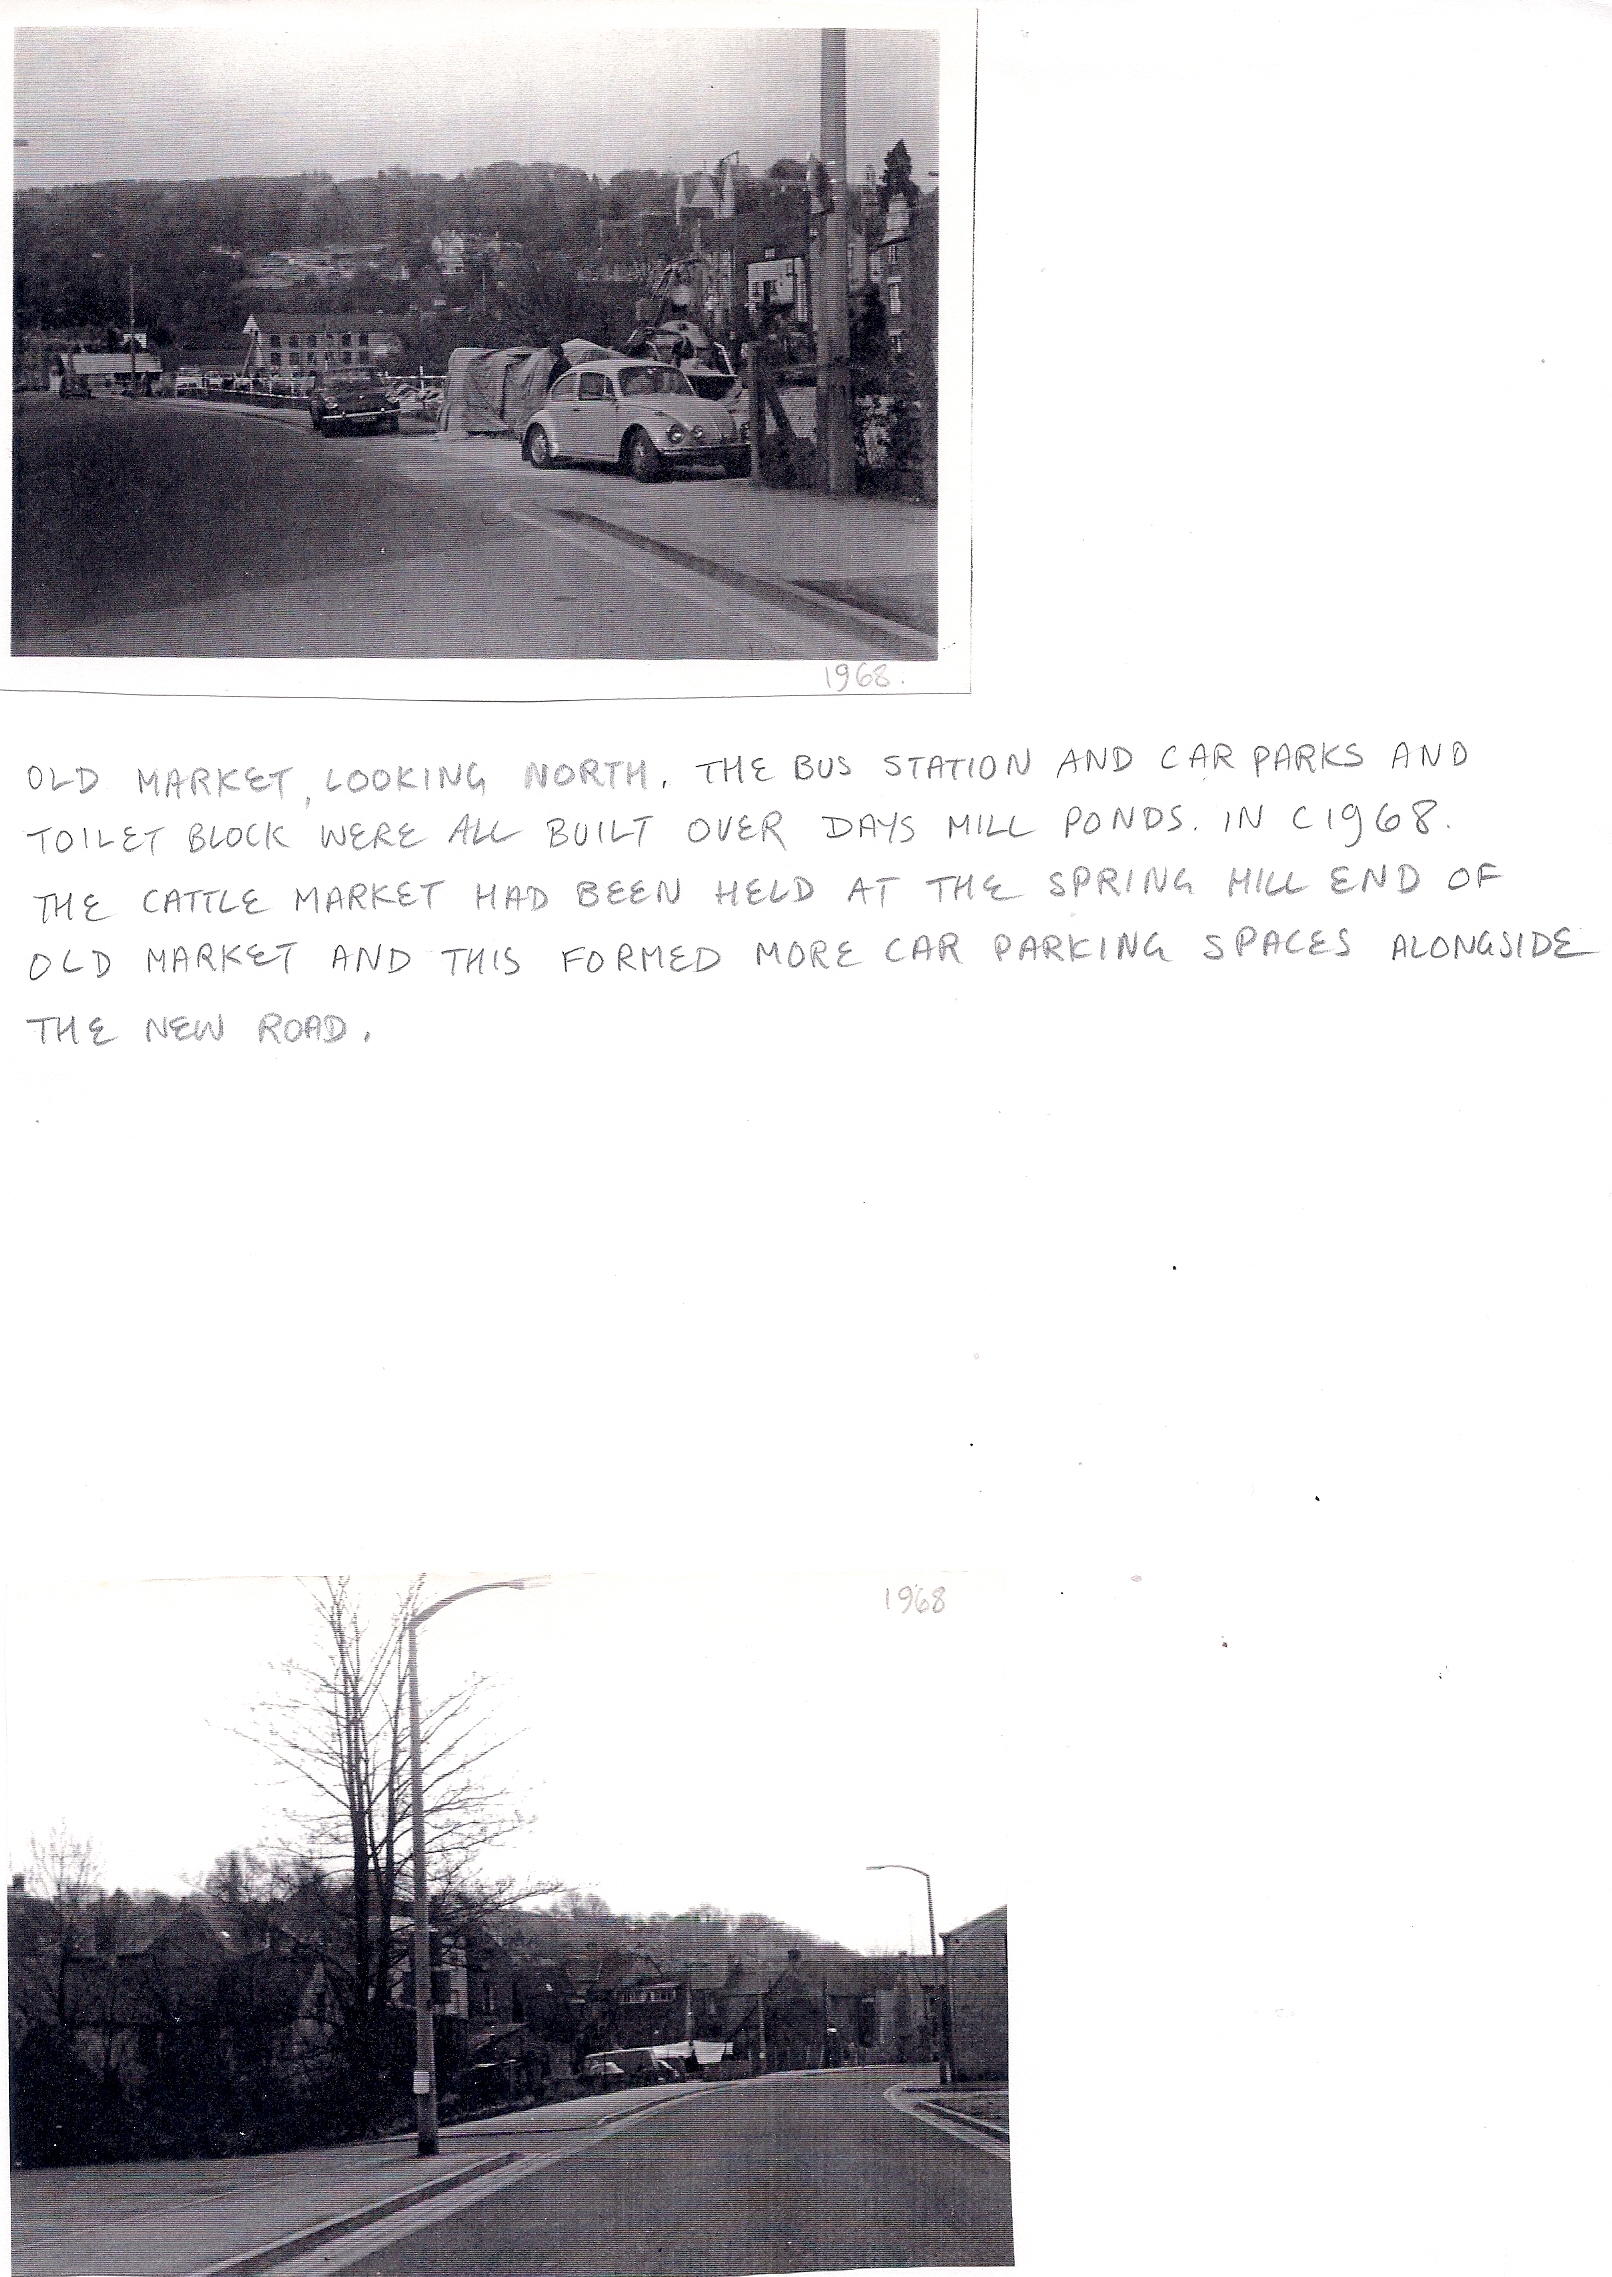 1968.
OLD MARKET, LOOKING NORTH. THE BUS STATION AND CAR PARKS AND
TOILET BLOCK WERE ALL BUILT OVER DAYS MILL PONDS. IN C1968.
THE CATTLE MARKET HAD BEEN HELD AT THE SPRING HILL END OF
OLD MARKET AND THIS FORMED MORE CAR PARKING SPACES ALONGSIDE
THE NEW ROAD.
1968